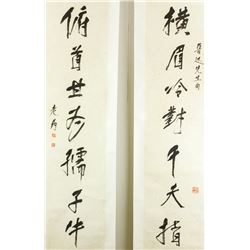 魯迅先生句
橫眉冷對千夫指
俯首甘为孺子牛